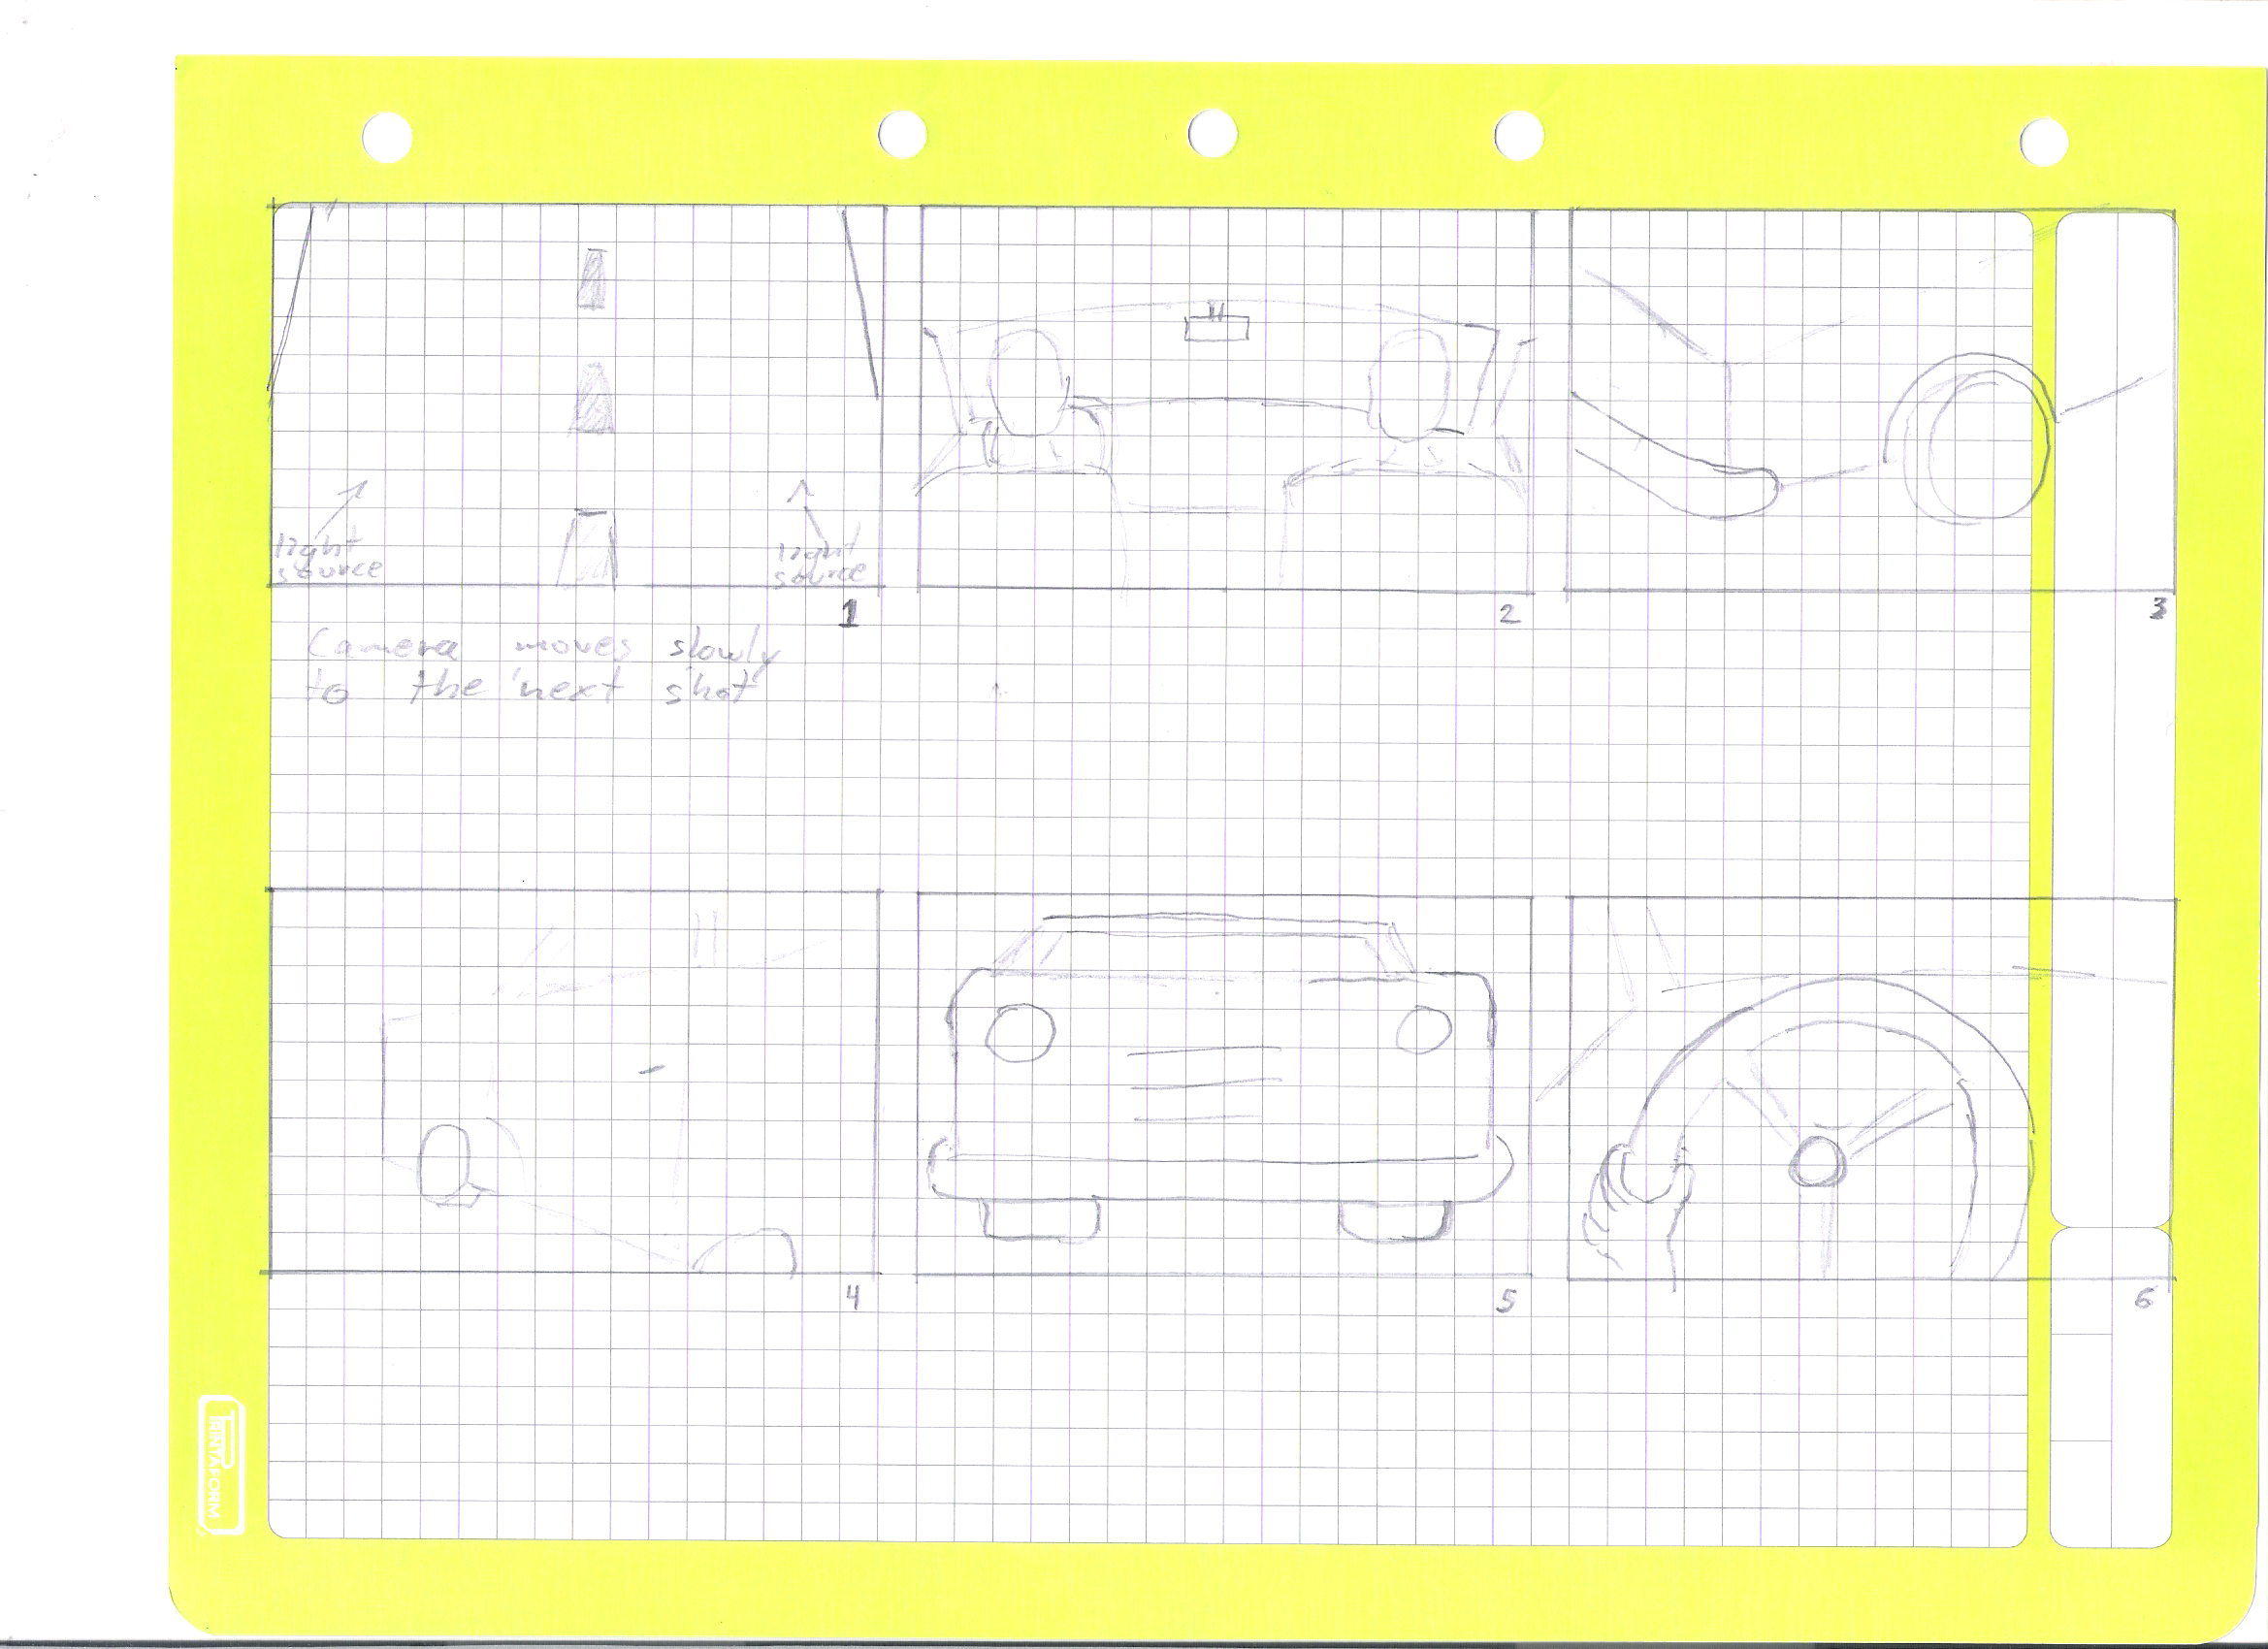 light
source
light
source
1
2
3
Camera moves slowly
to the next shot
4
5
6
TRINTAFORM